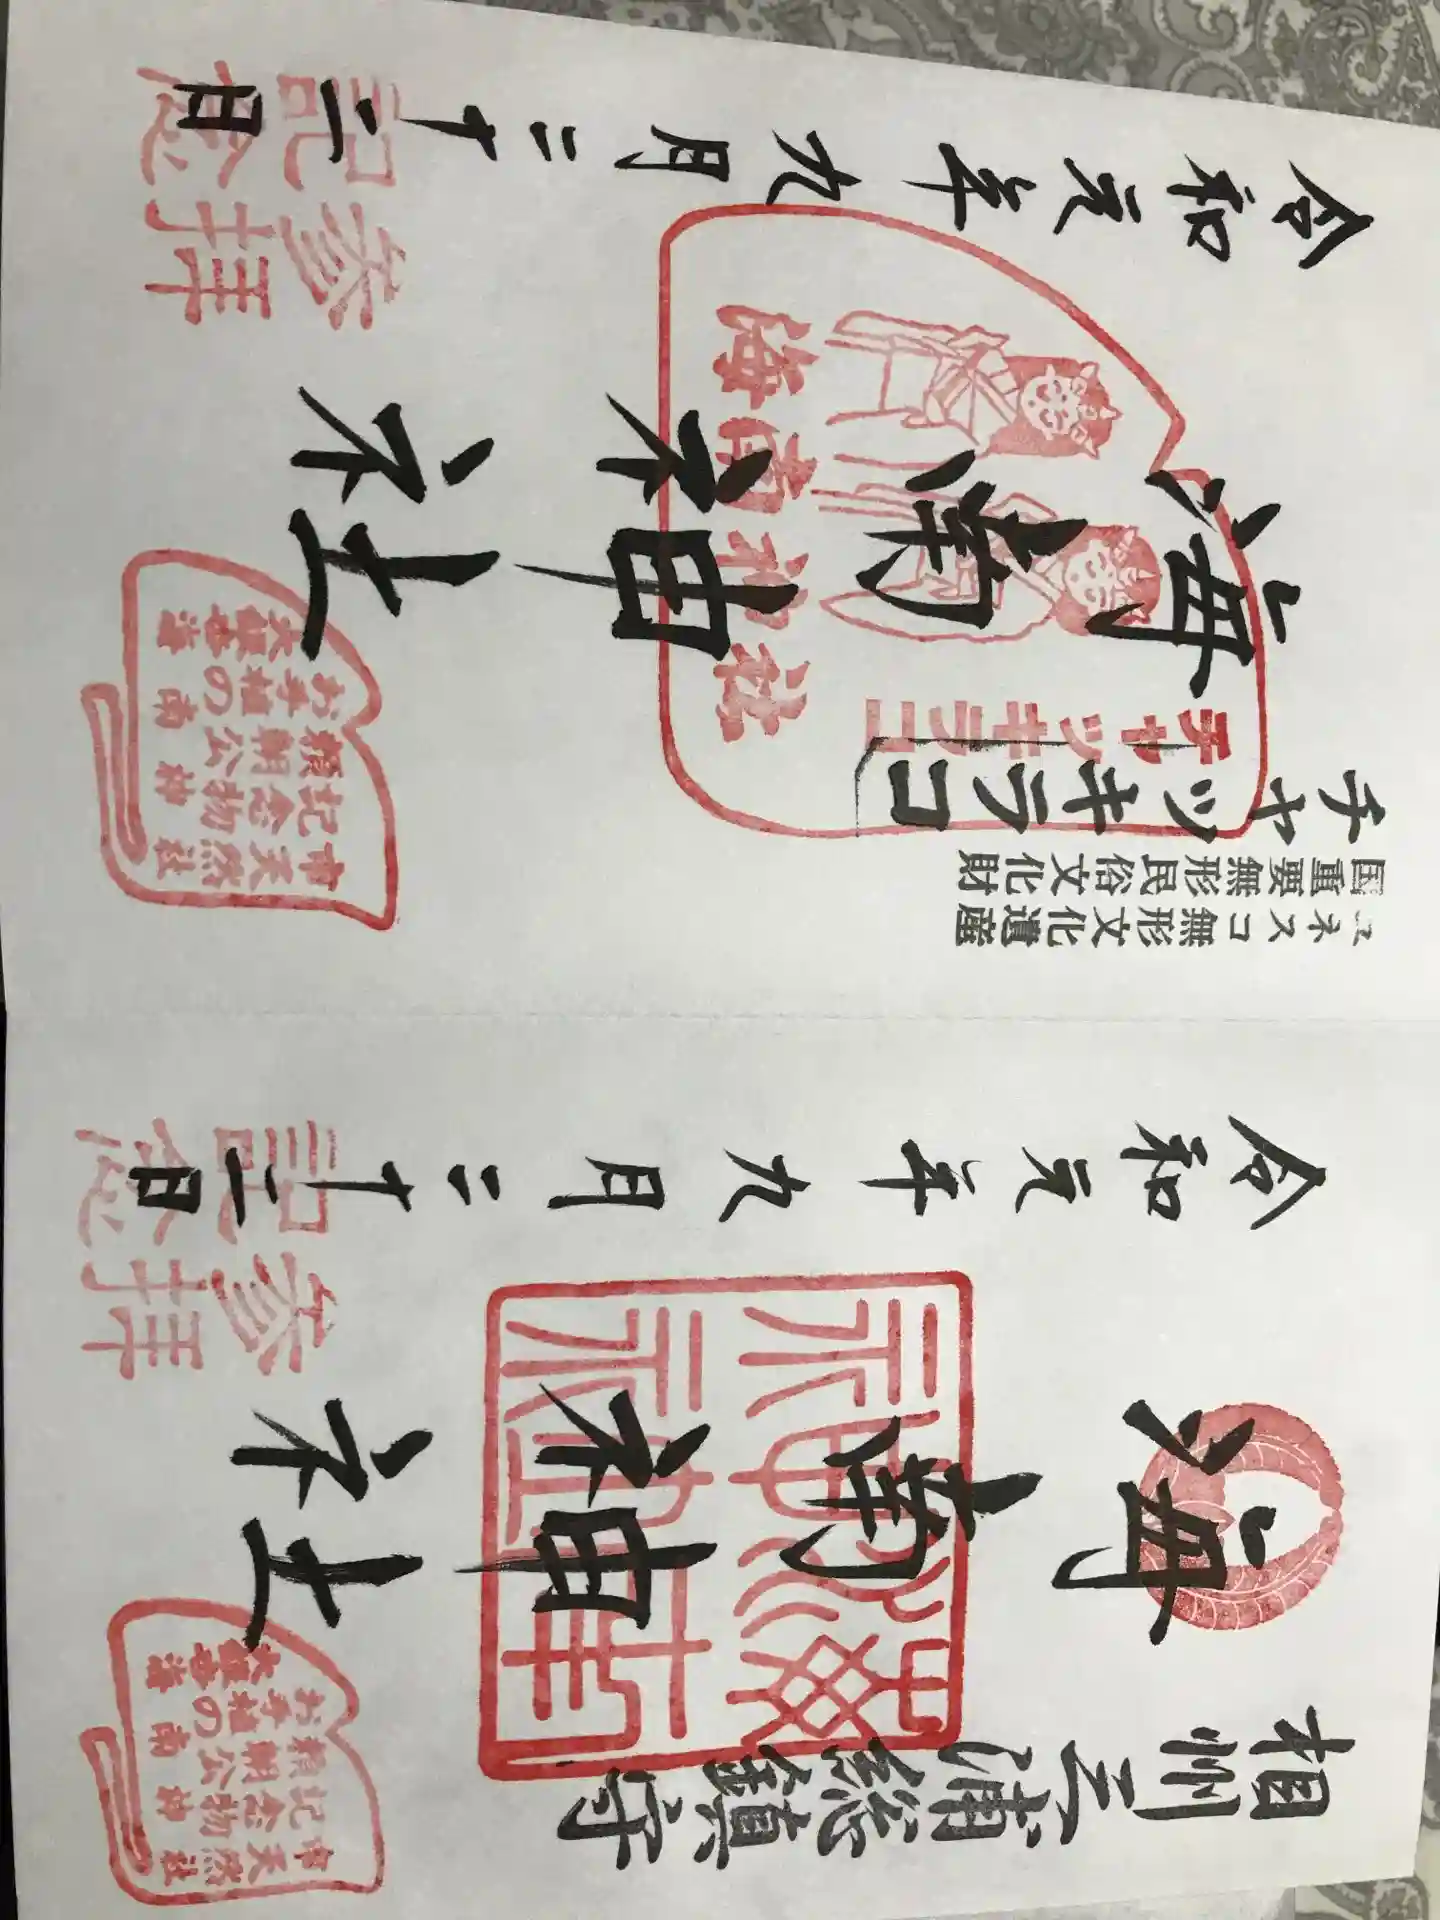 相州三浦総鎮守
海南神社
令和元年九月二十二日
参拝
記念
市天然
記念物
頼朝公
お手植の
大銀杏
海南神社
ユネスコ無形文化遺産
国重要無形民俗文化財
チャッキラコ
チャッキラコ
海南神社
海南神社
令和元年九月二十二日
参拝
記念
市天然
記念物
頼朝公
お手植の
大銀杏
海南神社